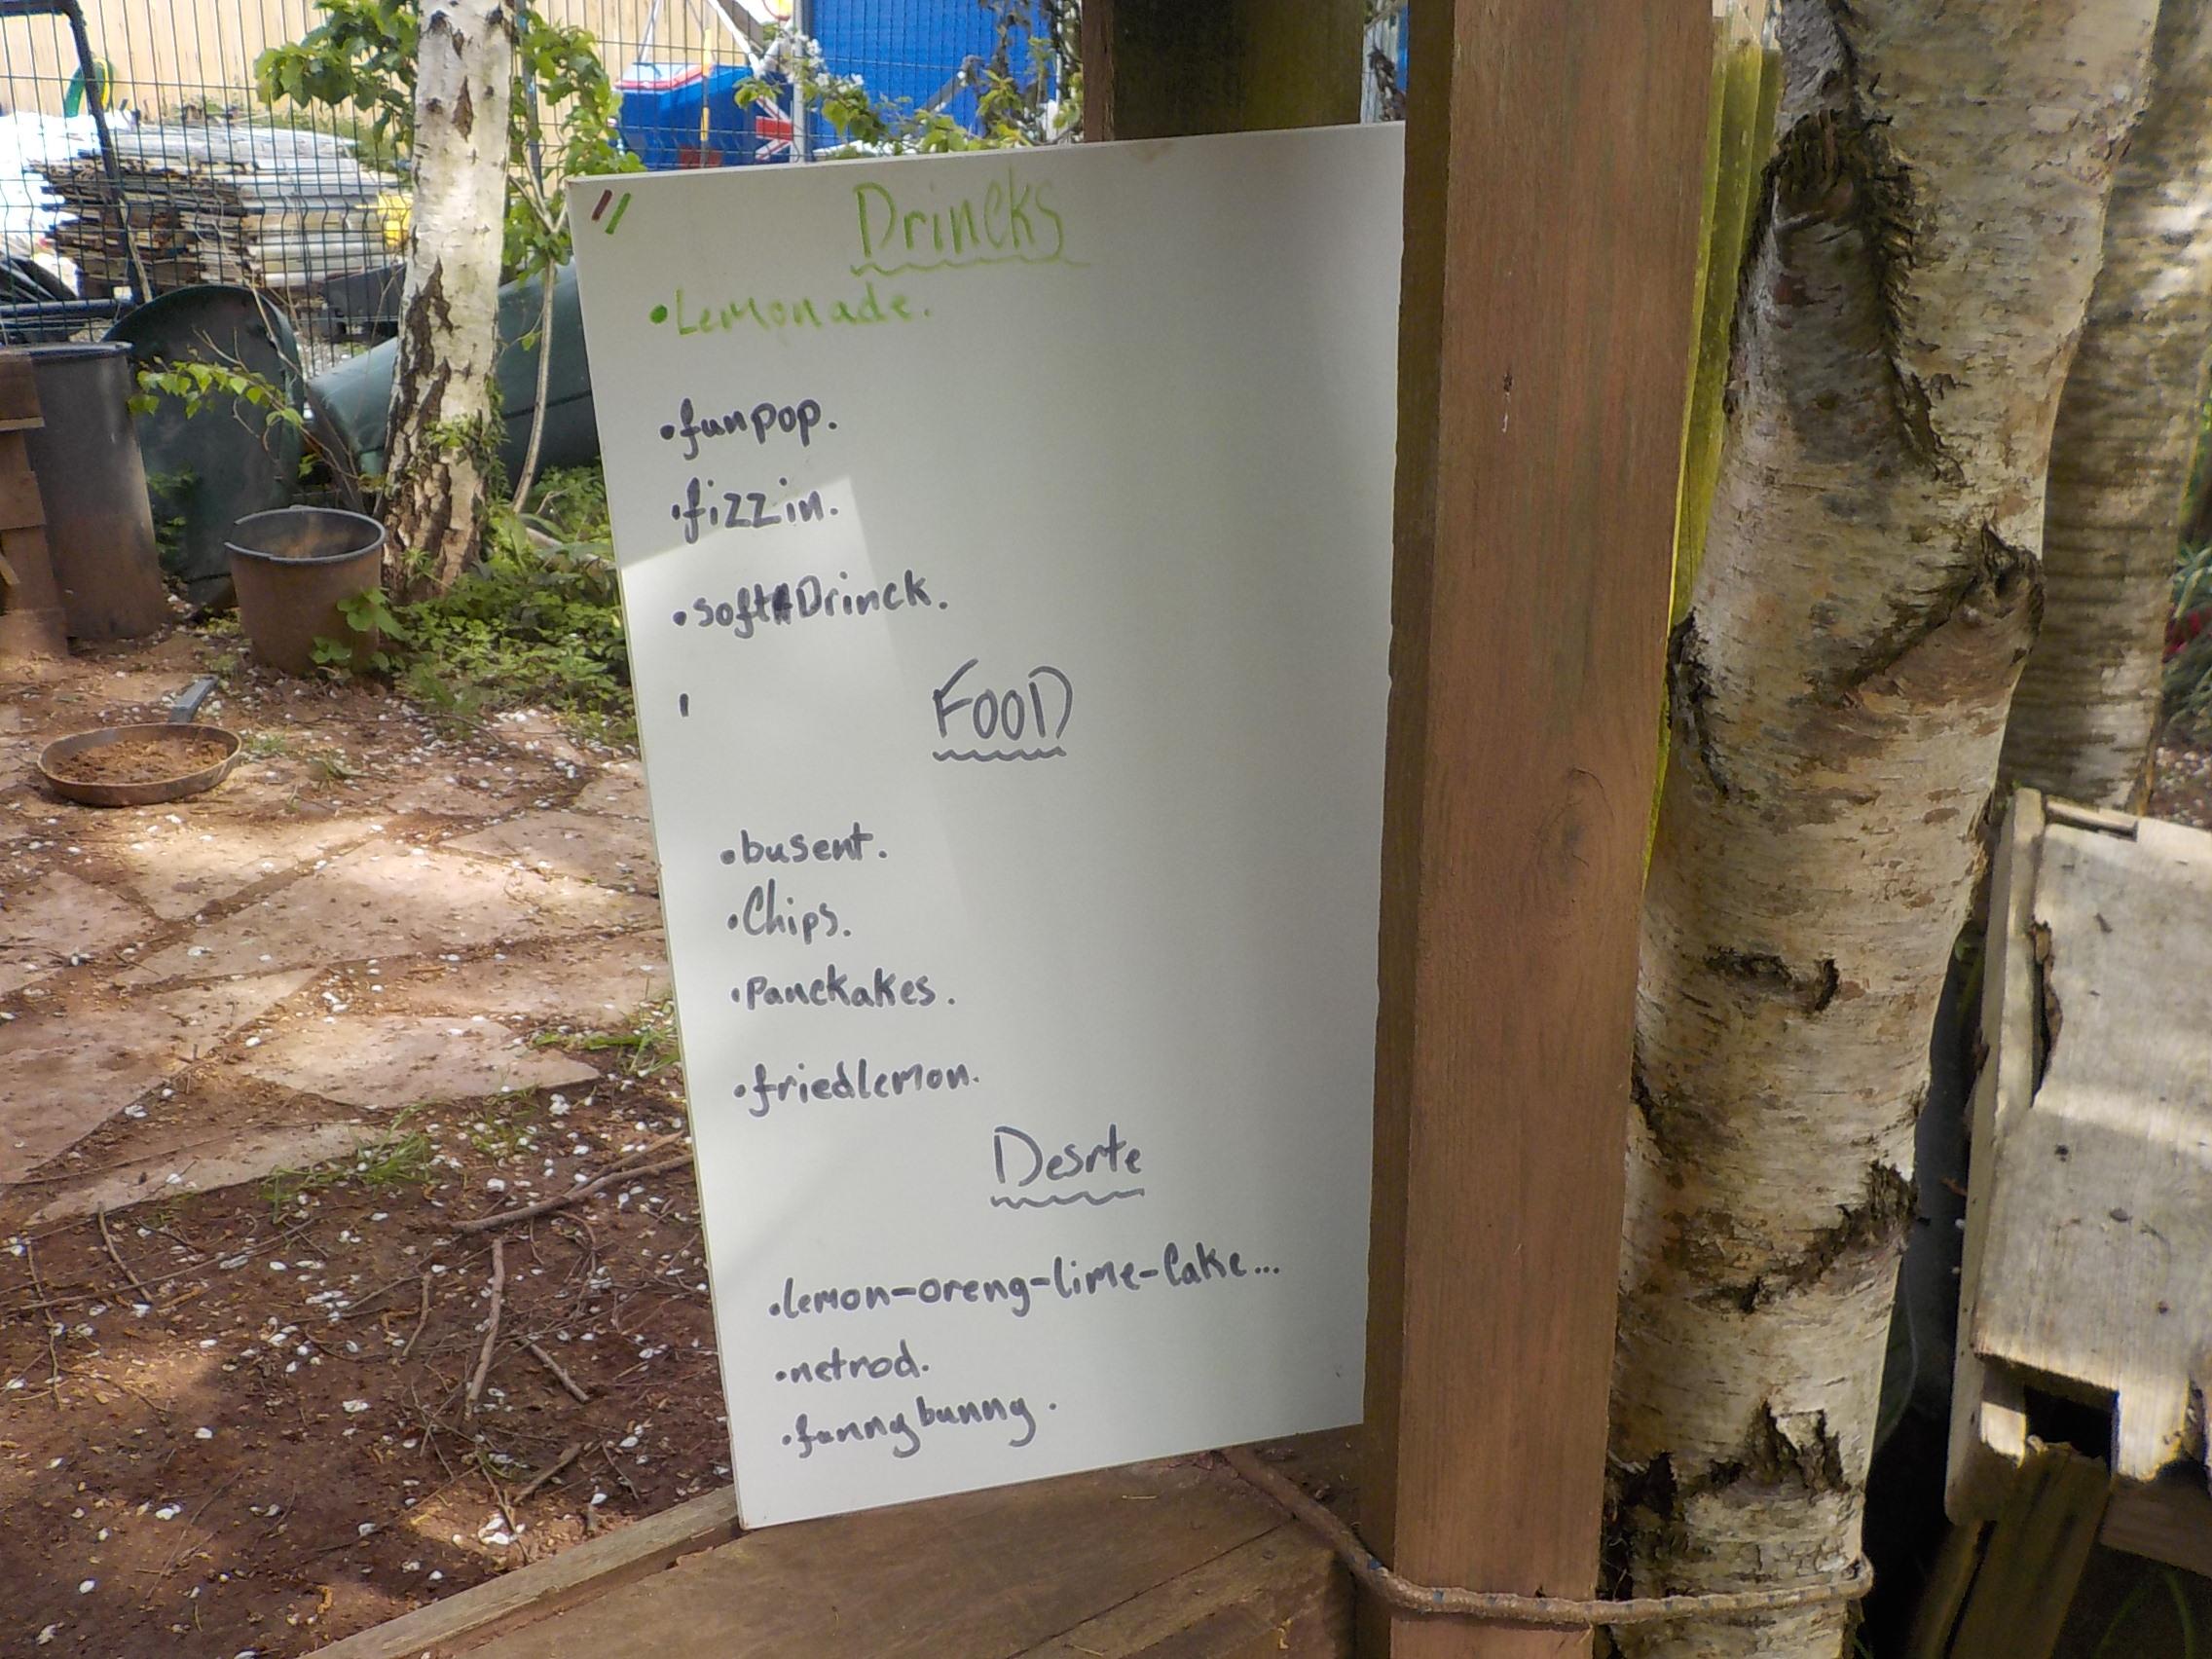 Drincks
•Lemonade.
•funpop.
•fizzin.
•soft Drinck.
FOOD
•busent.
•Chips.
•Panckakes.
•friedlemon.
Desrte
•lemon-oreng-lime-Cake...
•netrod.
•funnybunny.